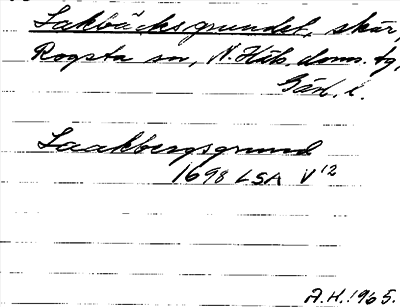 Sakbäcksgrundet, skär,
Rogsta sn, N. Häls. doms. tg,
Gävl. l.
Saakbergsgrund
1698 LSA V¹²
A.H. 1965.